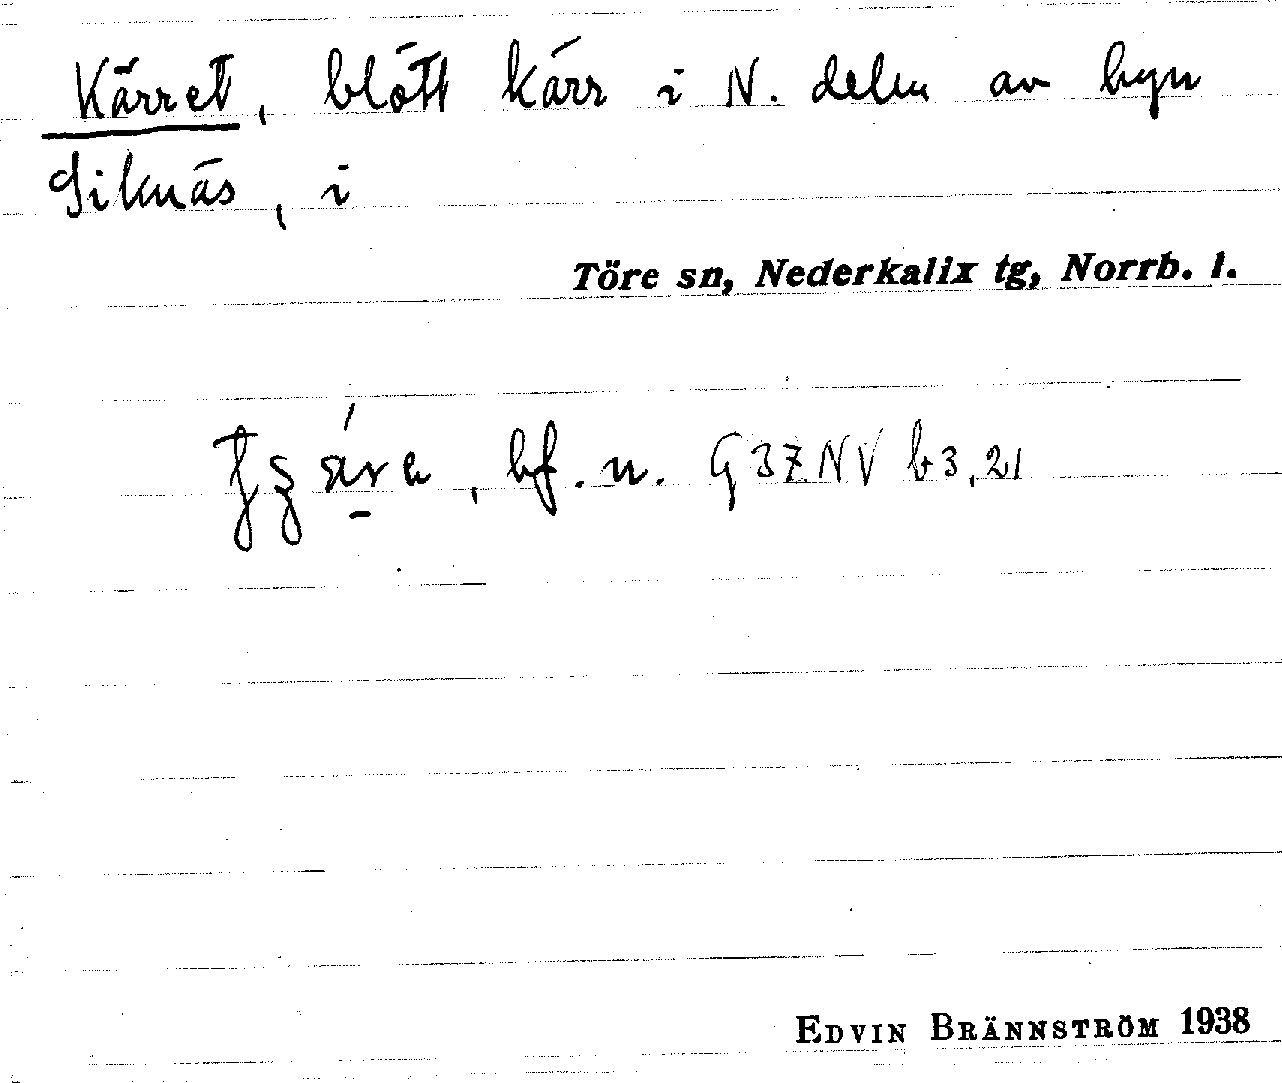 Kärret, blött kärr i N. delen av byn
Siknäs, i
Töre sn, Nederkalix tg, Norrb. l.
, bf. n. G37NV b3,21
EDVIN BRÄNNSTRÖM 1938